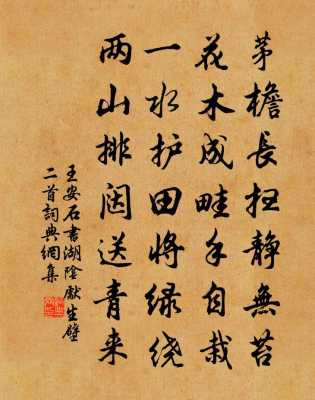 茅檐長扫靜無苔
花木成畦手自栽
一水护田将绿绕
两山排闼送青来
王安石書湖陰獻生壁
二首詞典網集